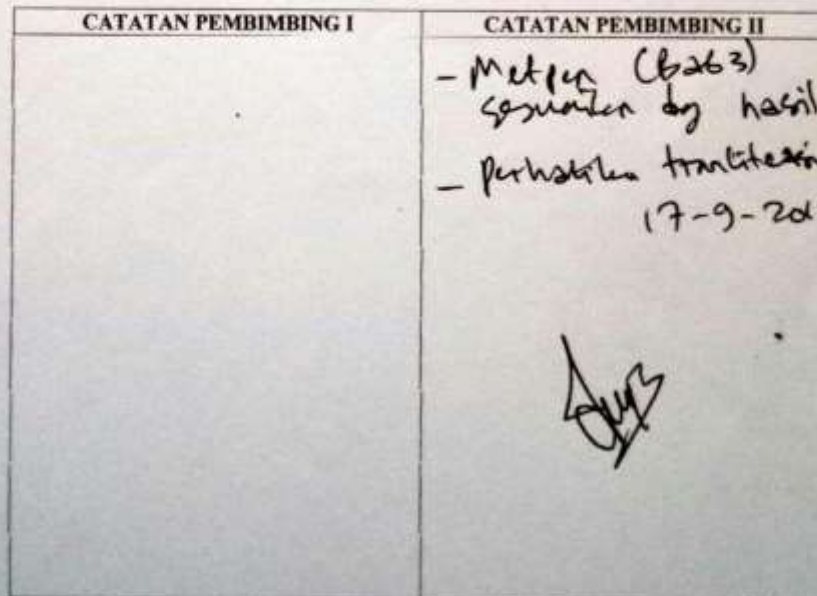 CATATAN PEMBIMBING I
CATATAN PEMBIMBING II
- Metpen (Bab 3)
sesuaikan dg hasil
- Perhatikan
17-9-20